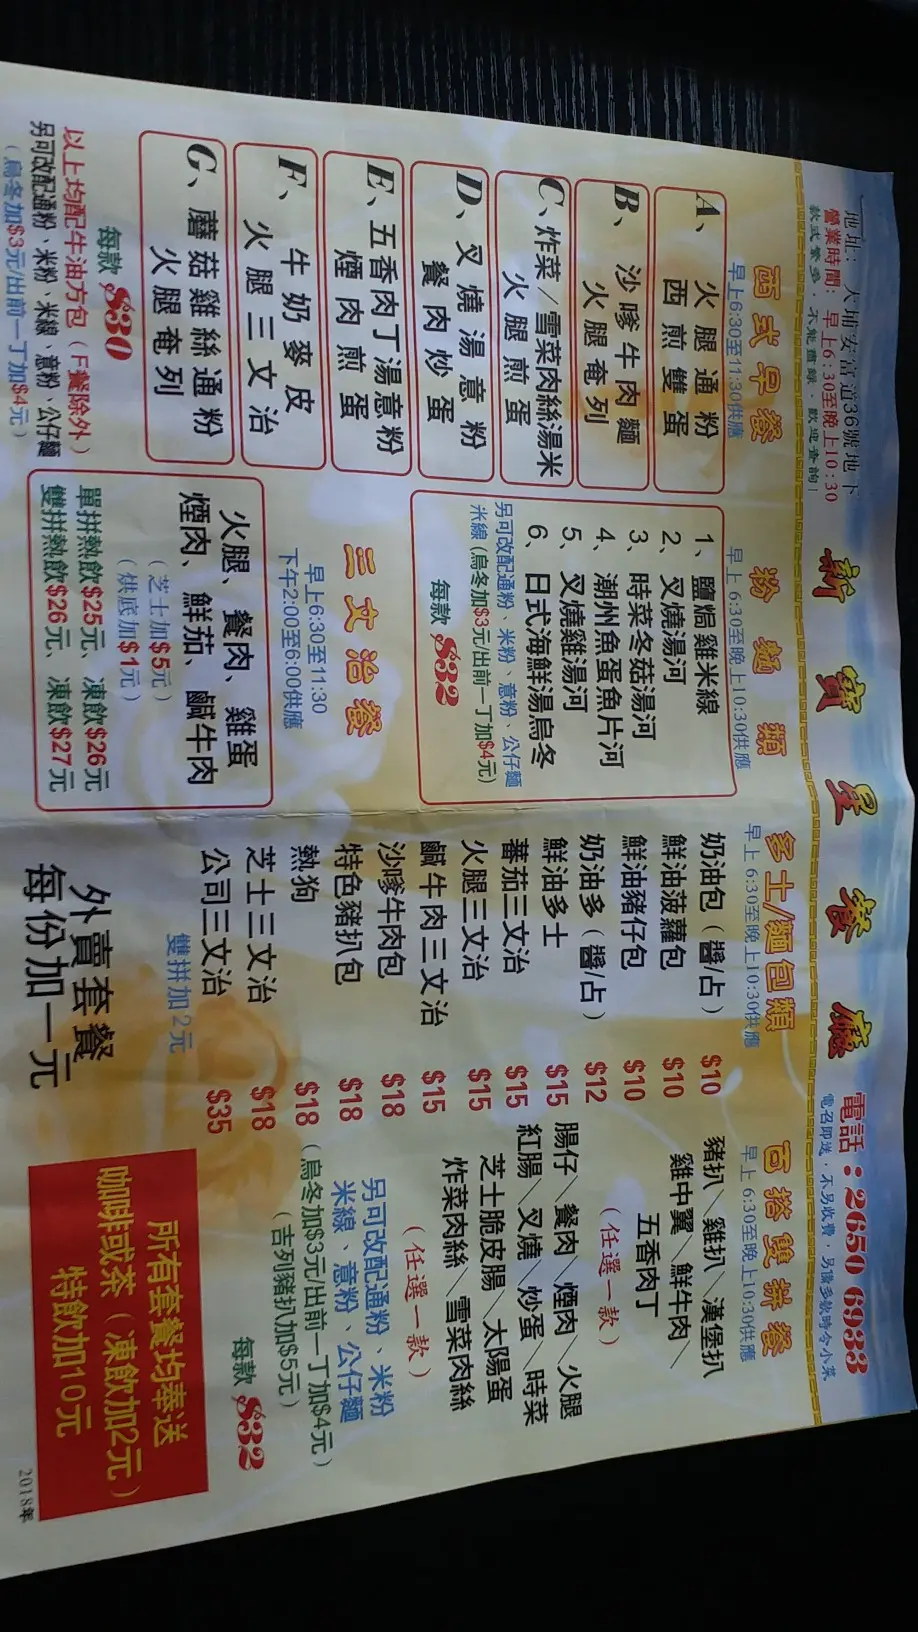 新寶星餐廳
電話：2650 6933
地址： 大埔安富道36號地下
營業時間: 早上6:30至晚上10:30
款式繁多，不能盡錄，歡迎查詢！
電召即送，不另收費，另備多款時令小菜
西式早餐
早上6:30至11:30供應
A、火腿通粉
西煎雙蛋
B、沙嗲牛肉麵
火腿奄列
C、炸菜/雪菜肉絲湯米
火腿煎蛋
D、叉燒湯意粉
餐肉炒蛋
E、五香肉丁湯意粉
煙肉煎蛋
F、牛奶麥皮
火腿三文治
G、蘑菇雞絲通粉
火腿奄列
每款 $30
以上均配牛油方包（F餐除外）
另可改配通粉、米粉、米線、意粉、公仔麵
（烏冬加$3元/出前一丁加$4元）
粉麵類
早上6:30至晚上10:30供應
1、鹽焗雞米線
2、叉燒湯河
3、時菜冬菇湯河
4、潮州魚蛋魚片河
5、叉燒雞湯河
6、日式海鮮湯烏冬
另可改配通粉、米粉、意粉、公仔麵
米線（烏冬加$3元/出前一丁加$4元）
每款 $32
三文治餐
早上6:30至11:30
下午2:00至6:00供應
火腿、餐肉、雞蛋
煙肉、鮮茄、鹹牛肉
（芝士加$5元）
（烘底加$1元）
單拼熱飲$25元、凍飲$26元
雙拼熱飲$26元、凍飲$27元
多士/麵包類
早上6:30至晚上10:30供應
奶油包（醬/占） $10
鮮油菠蘿包 $10
鮮油豬仔包 $10
奶油多（醬/占） $12
鮮油多士 $15
蕃茄三文治 $15
火腿三文治 $15
鹹牛肉三文治 $15
沙嗲牛肉包 $18
特色豬扒包 $18
熱狗 $18
芝士三文治 $18
公司三文治 $35
雙拼加2元
外賣套餐
每份加一元
百搭雙拼餐
早上6:30至晚上10:30供應
豬扒＼雞扒＼漢堡扒
雞中翼＼鮮牛肉＼
五香肉丁
（任選一款）
腸仔＼餐肉＼煙肉＼火腿
紅腸＼叉燒＼炒蛋＼時菜
芝士脆皮腸＼太陽蛋
炸菜肉絲＼雪菜肉絲
（任選一款）
另可改配通粉、米粉
米線、意粉、公仔麵
（烏冬加$3元/出前一丁加$4元）
（吉列豬扒加$5元）
每款 $32
所有套餐均奉送
咖啡或茶（凍飲加2元）
特飲加10元
2018年